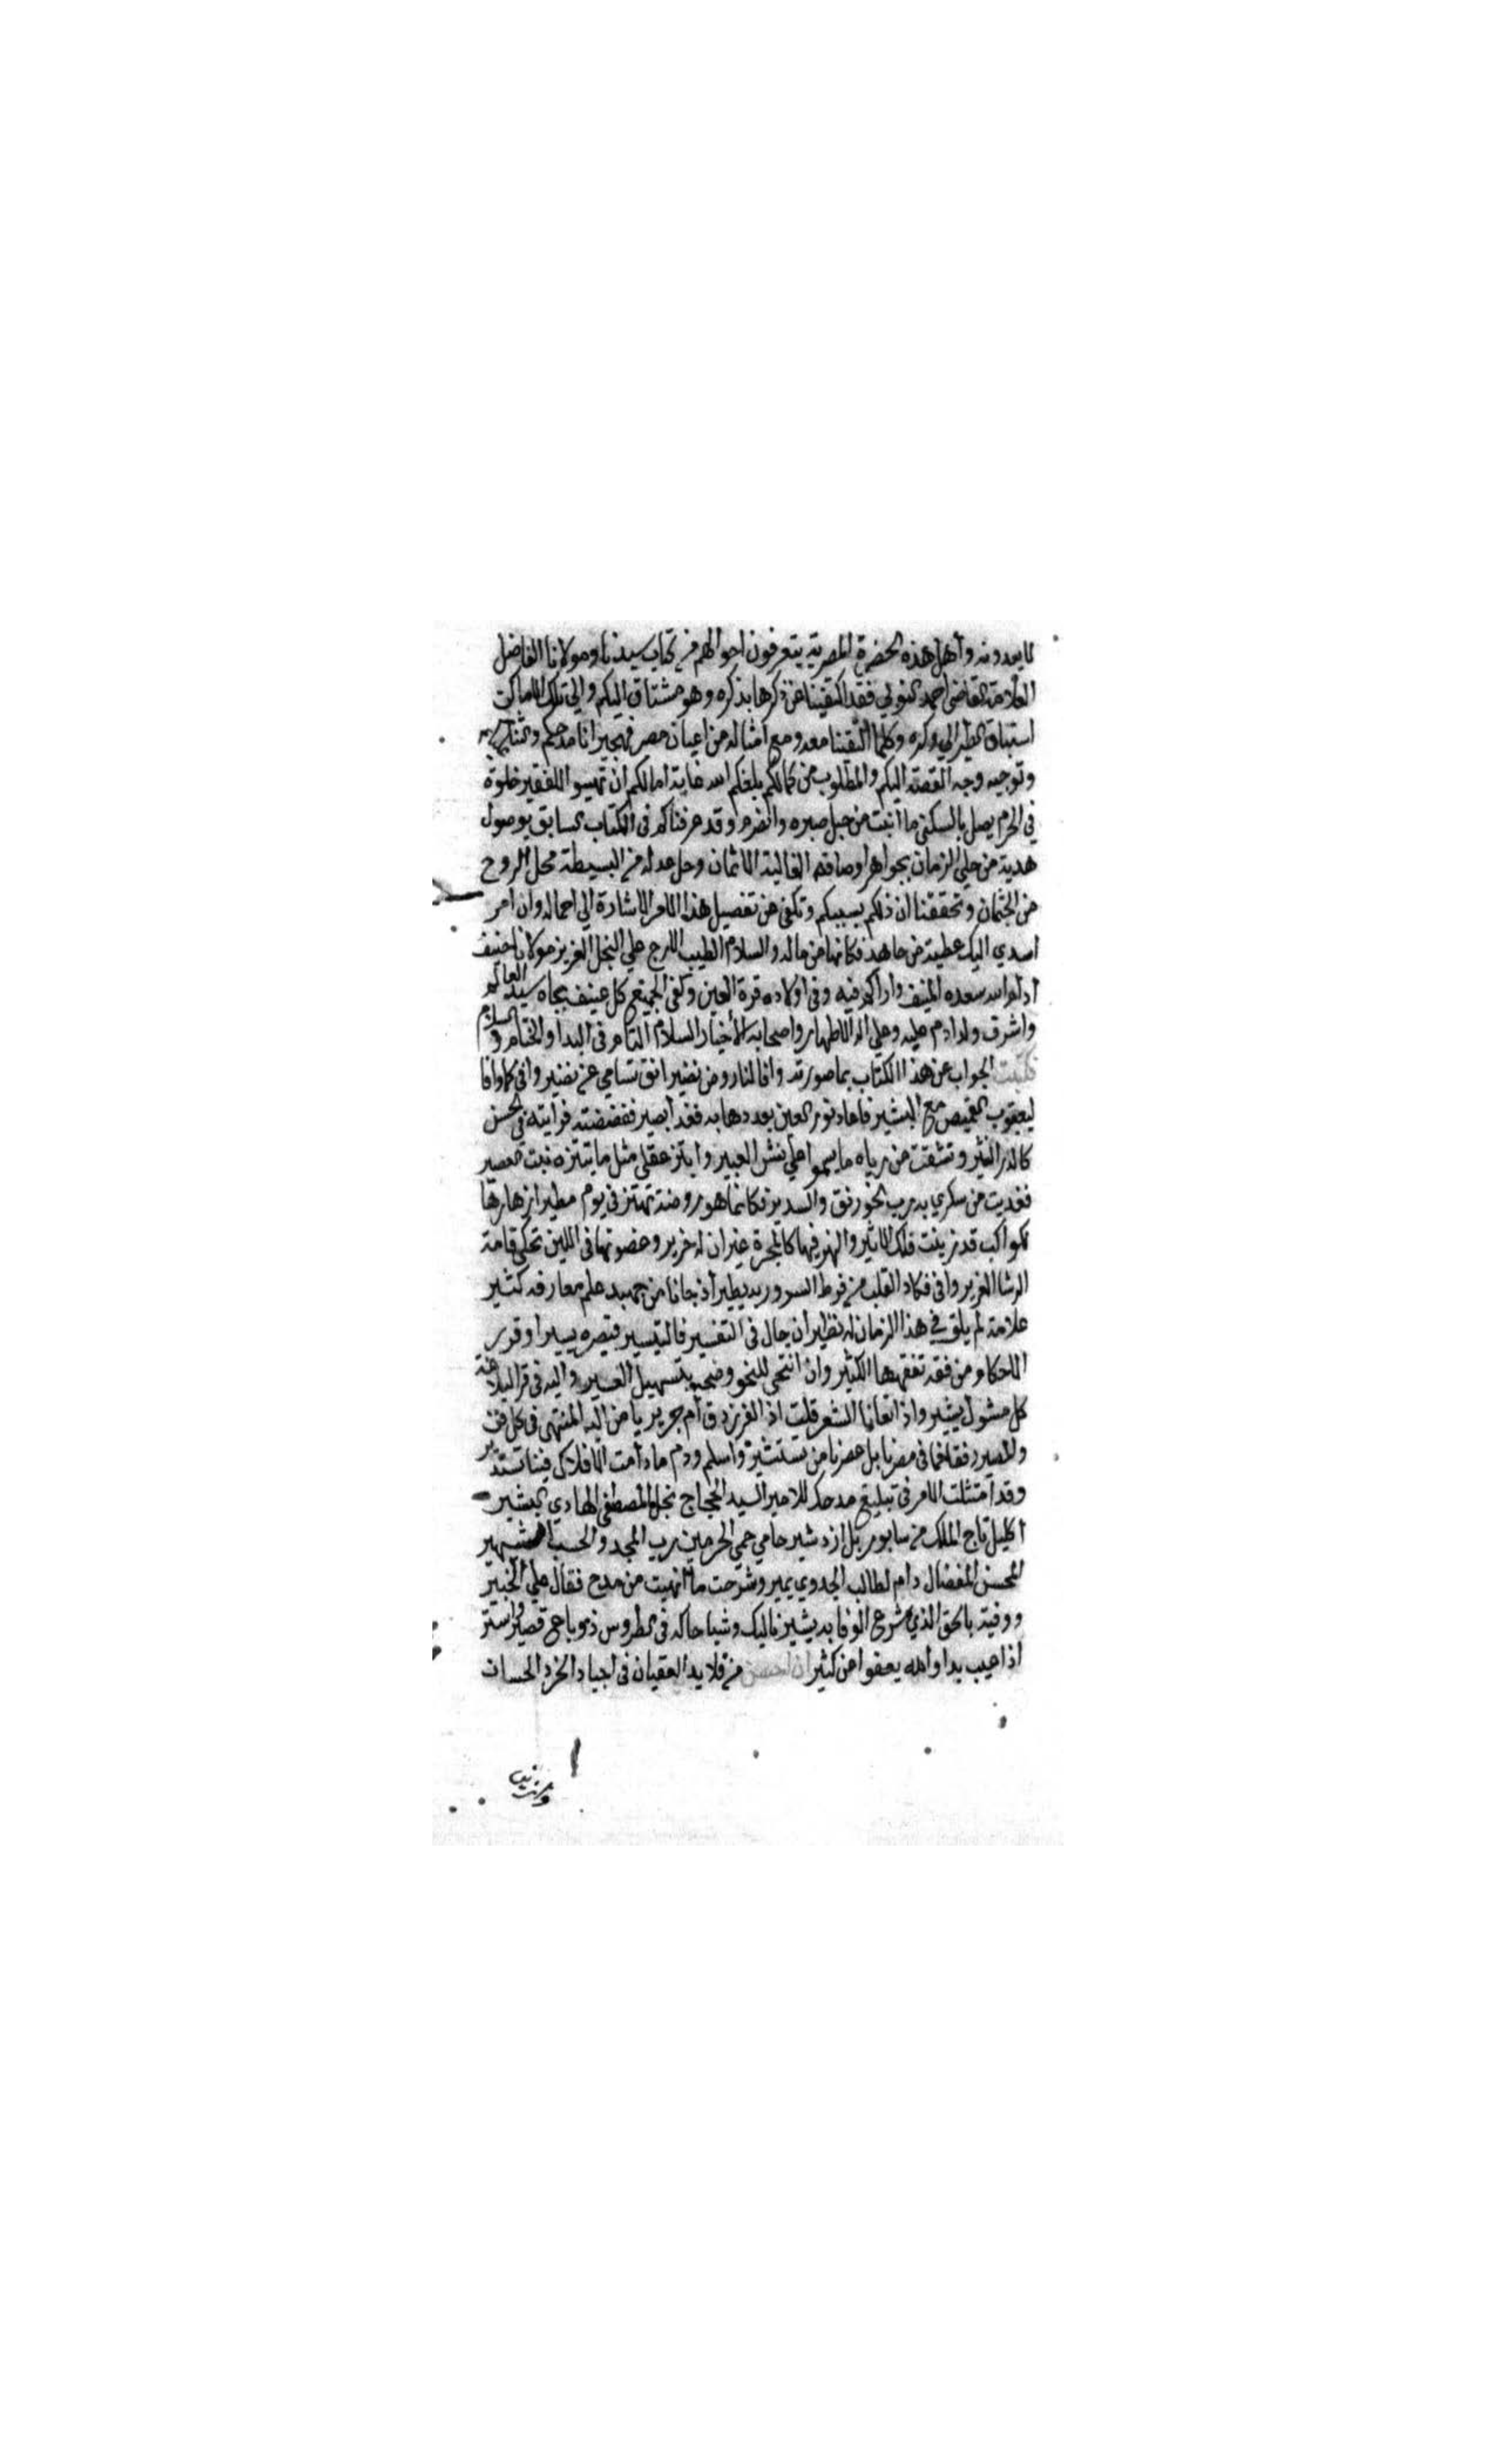 لا يعدونه وأهل هذه الحضرة المصرية يتعرفون احوالهم من كتاب سيدنا ومولانا الفاضل
العلامة القاضي احمد النوبي فقد اكتفينا عن ذكرها بذكره وهو مشتاق اليكم والى تلك الاماكن
اشتياق الطير الى وكره وكلما التقينا معه ومع امثاله من اعيان مصر فهجيرانا مدحكم والثنا
وتوجيه وجه القصد اليكم والمطلوب من كمالكم بلغكم الله غاية امالكم ان تهيئوا للفقير خلوة
في الحرم يصل بالسكنى ما انبت من حبل صبره وانصرم وقد عرفناكم في الكتاب السابق بوصول
هدية من حلي الزمان بجواهر اوصافه الغالية الاثمان وحل عدله من البسيطة محل الروح
من الجثمان وتحققنا ان ذلكم بسببكم وتكفي عن تفصيل هذا الامر الاشارة الى اجماله وان امر
اسدي اليك عطية من جاهه فكانها من ماله والسلام الطيب الارج على النجل العزيز مولانا حنيف
ادام الله سعده المنيف واراكم فيه وفي اولاده قرة العين وكفى الجميع كل عنيف بجاه سيد العالم
واشرف ولد ادم عليه وعلى اله الاطهار واصحابه الأخيار السلام التام في البدا والختام والسلام
فكتبت الجواب عن هذا الكتاب بما صورته وافا لنا روض نضير انق تسامي عن نضير وافى كما وافا
ليعقوب القميص مع البشير فاعاد نور العين بعد ذهابه فغدا بصير ففضضته فرأيته في الحسن
كالدر النثير وتنشقت من رياه ما يسموا على نشر العبير وابتز عقلي مثل ما تبتزه بنت العصير
فغديت من سكري به رب الخورنق والسدير فكانما هو روضة تهتز في يوم مطير ازهارها
كواكب قد زينت فلك الاثير والنهر فيها كالمجرة غير ان له خرير وغصونها في اللين تحكى قامة
الرشا الغرير وافى فكاد القلب من فرط السرور به يطير اذ جانا من جهبد علم معارفه كثير
علامة لم يلق في هذا الزمان له نظير ان جال في التفسير فالتيسير فيصره يسيرا وقرر
الاحكام من فقه تفقهها الكثير وان انتحى للنحو وضحه بتسهيل العسير واليه في فن البلاغة
كل مسئول يشير واذا تعانا الشعر قلت اذا الفرزدق أم جرير يا من اليه المنتهى في كل فن
والمصير فقا فما في مصرنا بل عصرنا من تستشير واسلم ودم ما دامت الافلاك فينا تستدير
وقد امتثلت الامر في تبليغ مدحك للامير السيد الحجاج نجل المصطفى الهادي البشير
اكليل تاج الملك من سابور بل ازدشير حامي حمى الحرمين رب المجد والحسب الشهير
المحسن المفضال دام لطالب الجدوى يمير وشرحت ما انهيت من مدح فقال على الخبير
ووفيته بالحق الذي شرع الوفا به يشير فاليك وشيا حاكه في الطروس ذو باع قصير واستر
اذا عيب بدا والله يعفوا عن كثير ان احسن من قلايد العقيان في اجياد الخرد الحسان